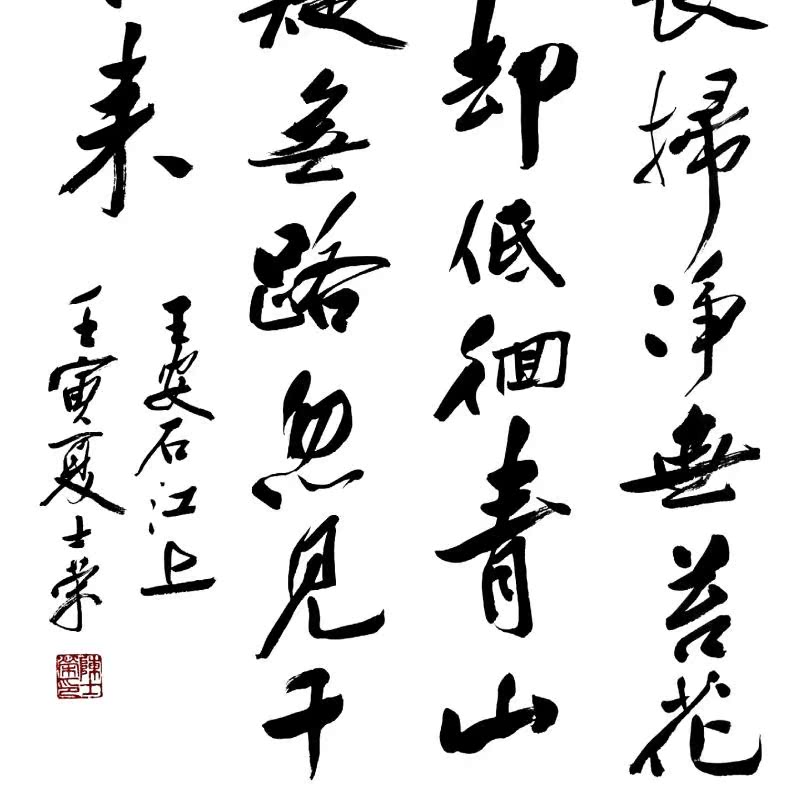 掃净無苔花
却低徊青山
無路忽見千
来
王安石江上
壬寅夏士荣
陳士榮印